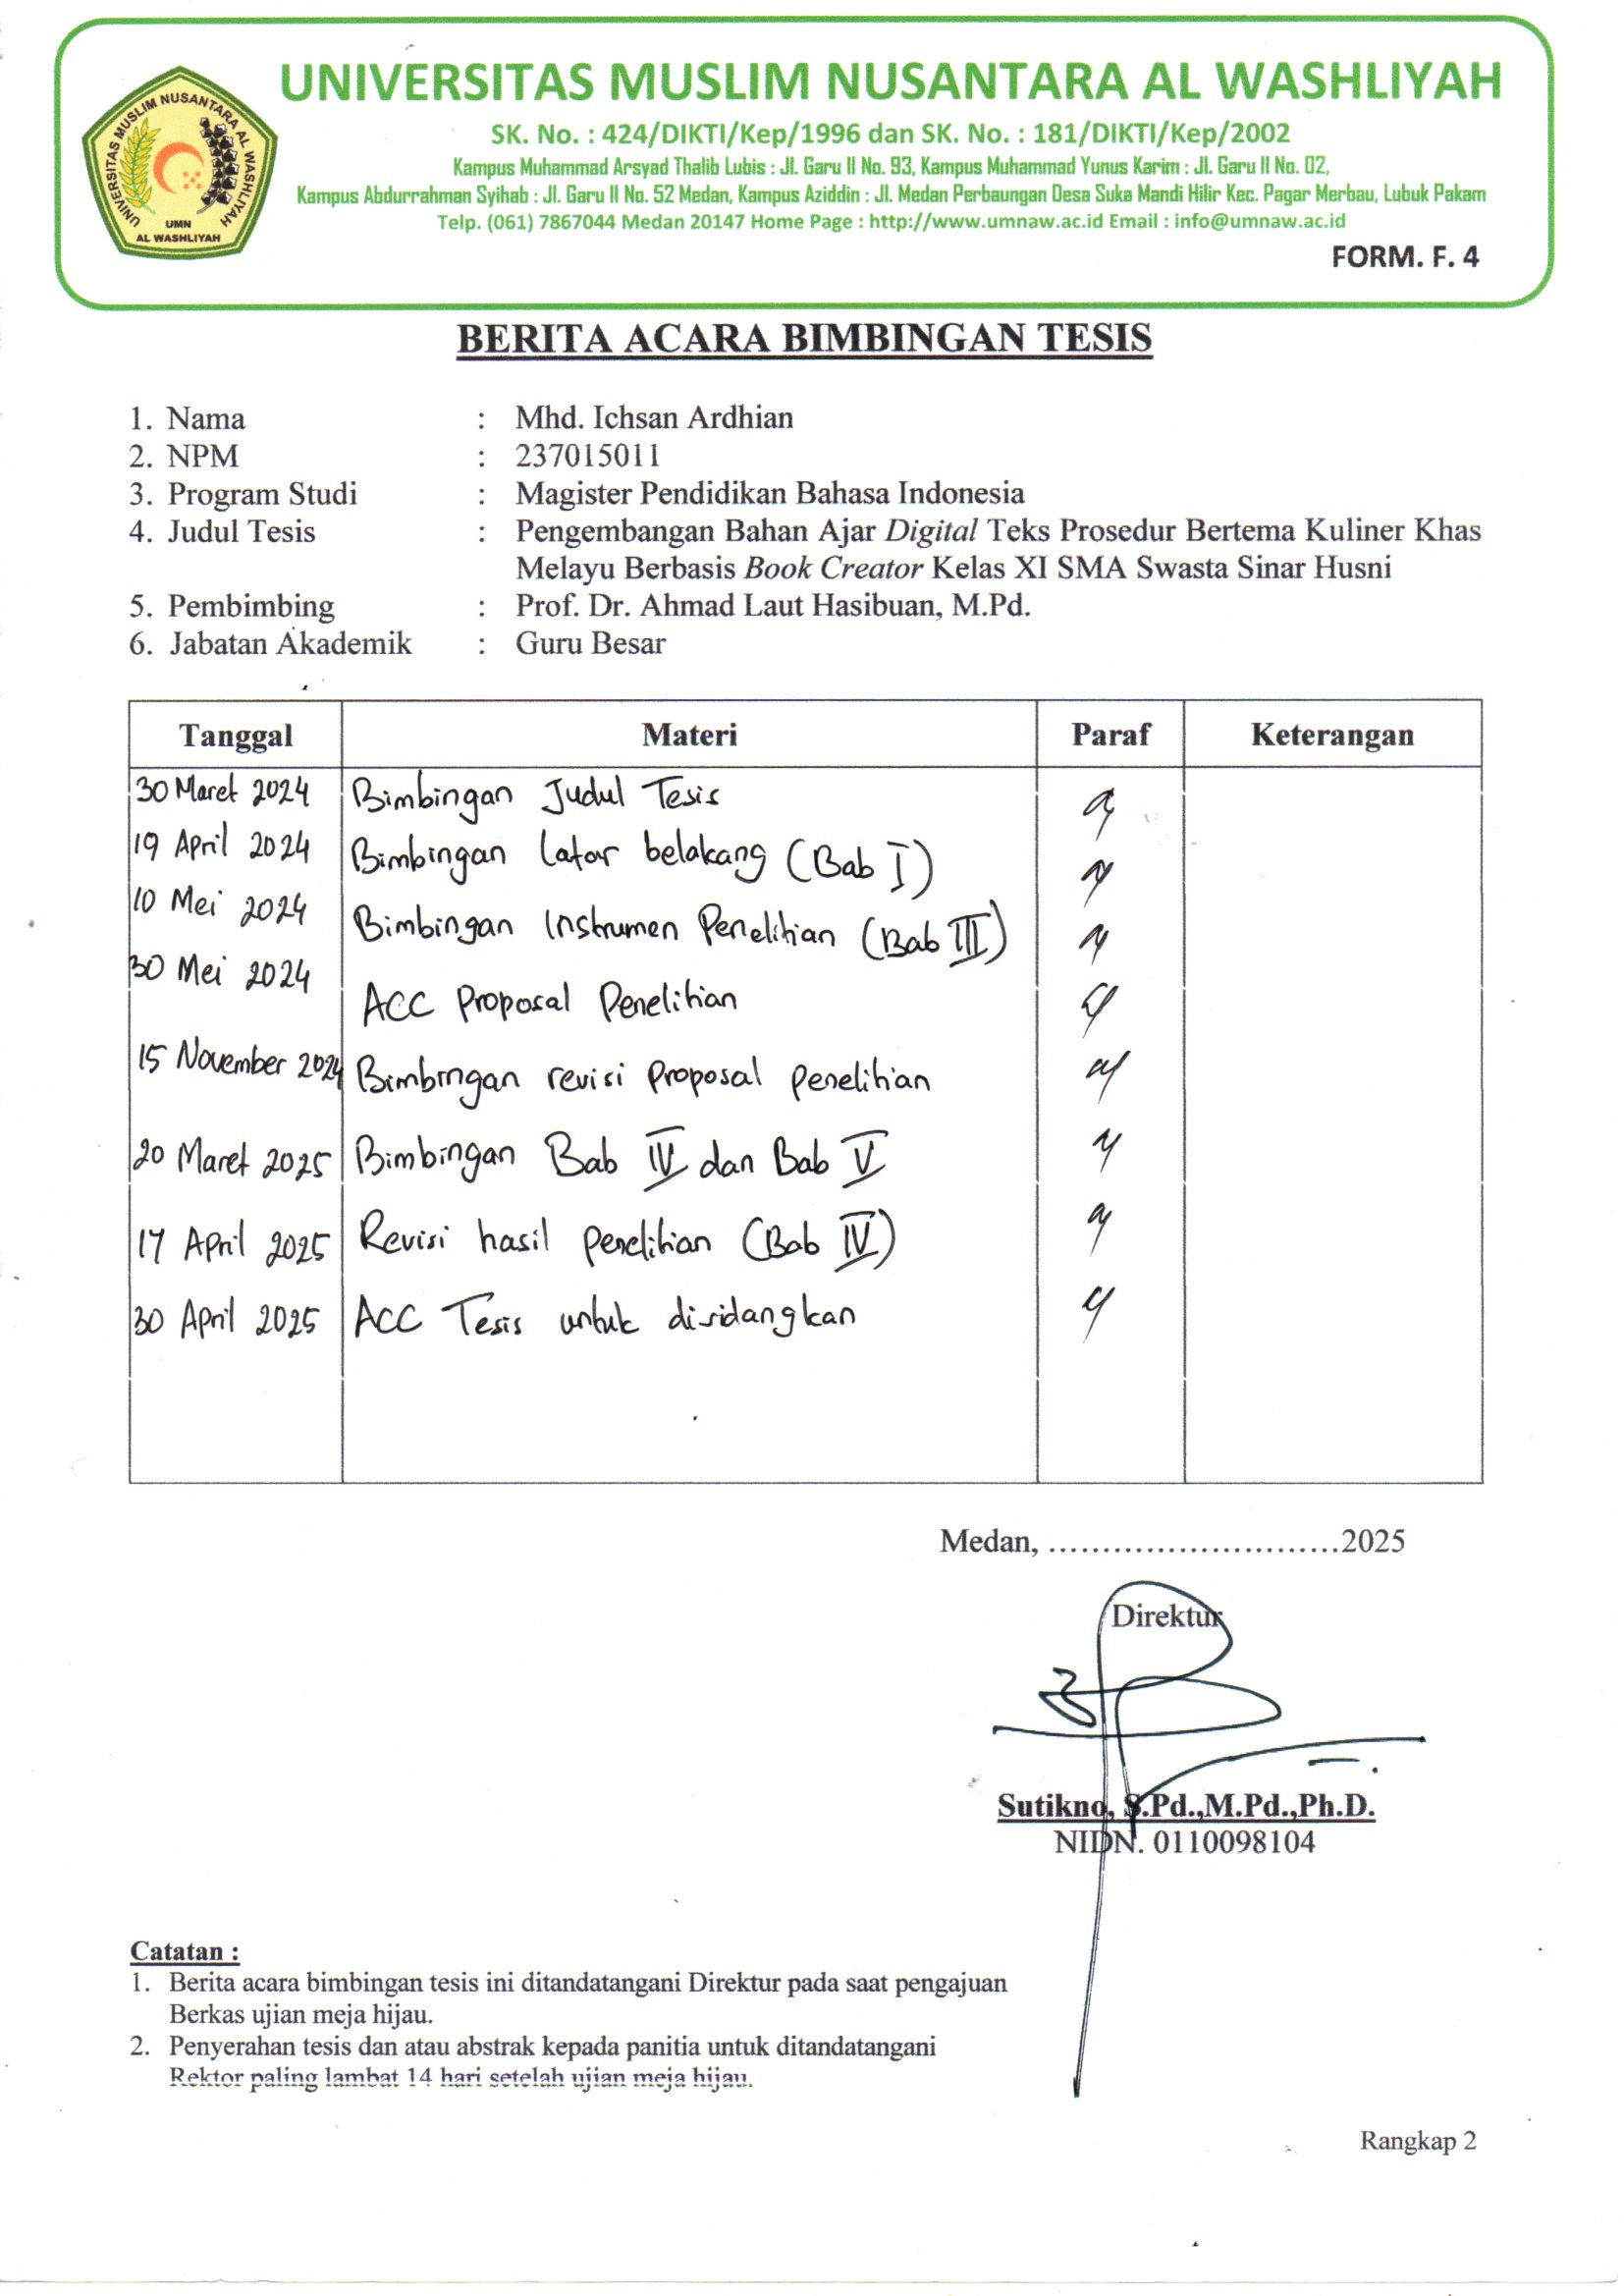 UNIVERSITAS MUSLIM NUSANTARA AL WASHLIYAH
SK. No. : 424/DIKTI/Kep/1996 dan SK. No. : 181/DIKTI/Kep/2002
Kampus Muhammad Arsyad Thalib Lubis : Jl. Garu II No. 93, Kampus Muhammad Yunus Karim : Jl. Garu II No. 02,
Kampus Abdurrahman Syihab : Jl. Garu II No. 52 Medan, Kampus Aziddin : Jl. Medan Perbaungan Desa Suka Mandi Hilir Kec. Pagar Merbau, Lubuk Pakam
Telp. (061) 7867044 Medan 20147 Home Page : http://www.umnaw.ac.id Email : info@umnaw.ac.id
UNIVERSITAS MUSLIM NUSANTARA AL WASHLIYAH
UMN
AL WASHLIYAH
FORM. F. 4
BERITA ACARA BIMBINGAN TESIS
1. Nama : Mhd. Ichsan Ardhian
2. NPM : 237015011
3. Program Studi : Magister Pendidikan Bahasa Indonesia
4. Judul Tesis : Pengembangan Bahan Ajar Digital Teks Prosedur Bertema Kuliner Khas
Melayu Berbasis Book Creator Kelas XI SMA Swasta Sinar Husni
5. Pembimbing : Prof. Dr. Ahmad Laut Hasibuan, M.Pd.
6. Jabatan Akademik : Guru Besar
Tanggal Materi Paraf Keterangan
30 Maret 2024 Bimbingan Judul Tesis
19 April 2024 Bimbingan latar belakang (Bab I)
10 Mei 2024 Bimbingan Instrumen Penelitian (Bab III)
30 Mei 2024 ACC Proposal Penelitian
15 November 2024 Bimbingan revisi proposal penelitian
20 Maret 2025 Bimbingan Bab IV dan Bab V
17 April 2025 Revisi hasil penelitian (Bab IV)
30 April 2025 ACC Tesis untuk disidangkan
Medan, ...........................2025
Direktur
Sutikno, S.Pd.,M.Pd.,Ph.D.
NIDN. 0110098104
Catatan :
1. Berita acara bimbingan tesis ini ditandatangani Direktur pada saat pengajuan
Berkas ujian meja hijau.
2. Penyerahan tesis dan atau abstrak kepada panitia untuk ditandatangani
Rektor paling lambat 14 hari setelah ujian meja hijau.
Rangkap 2